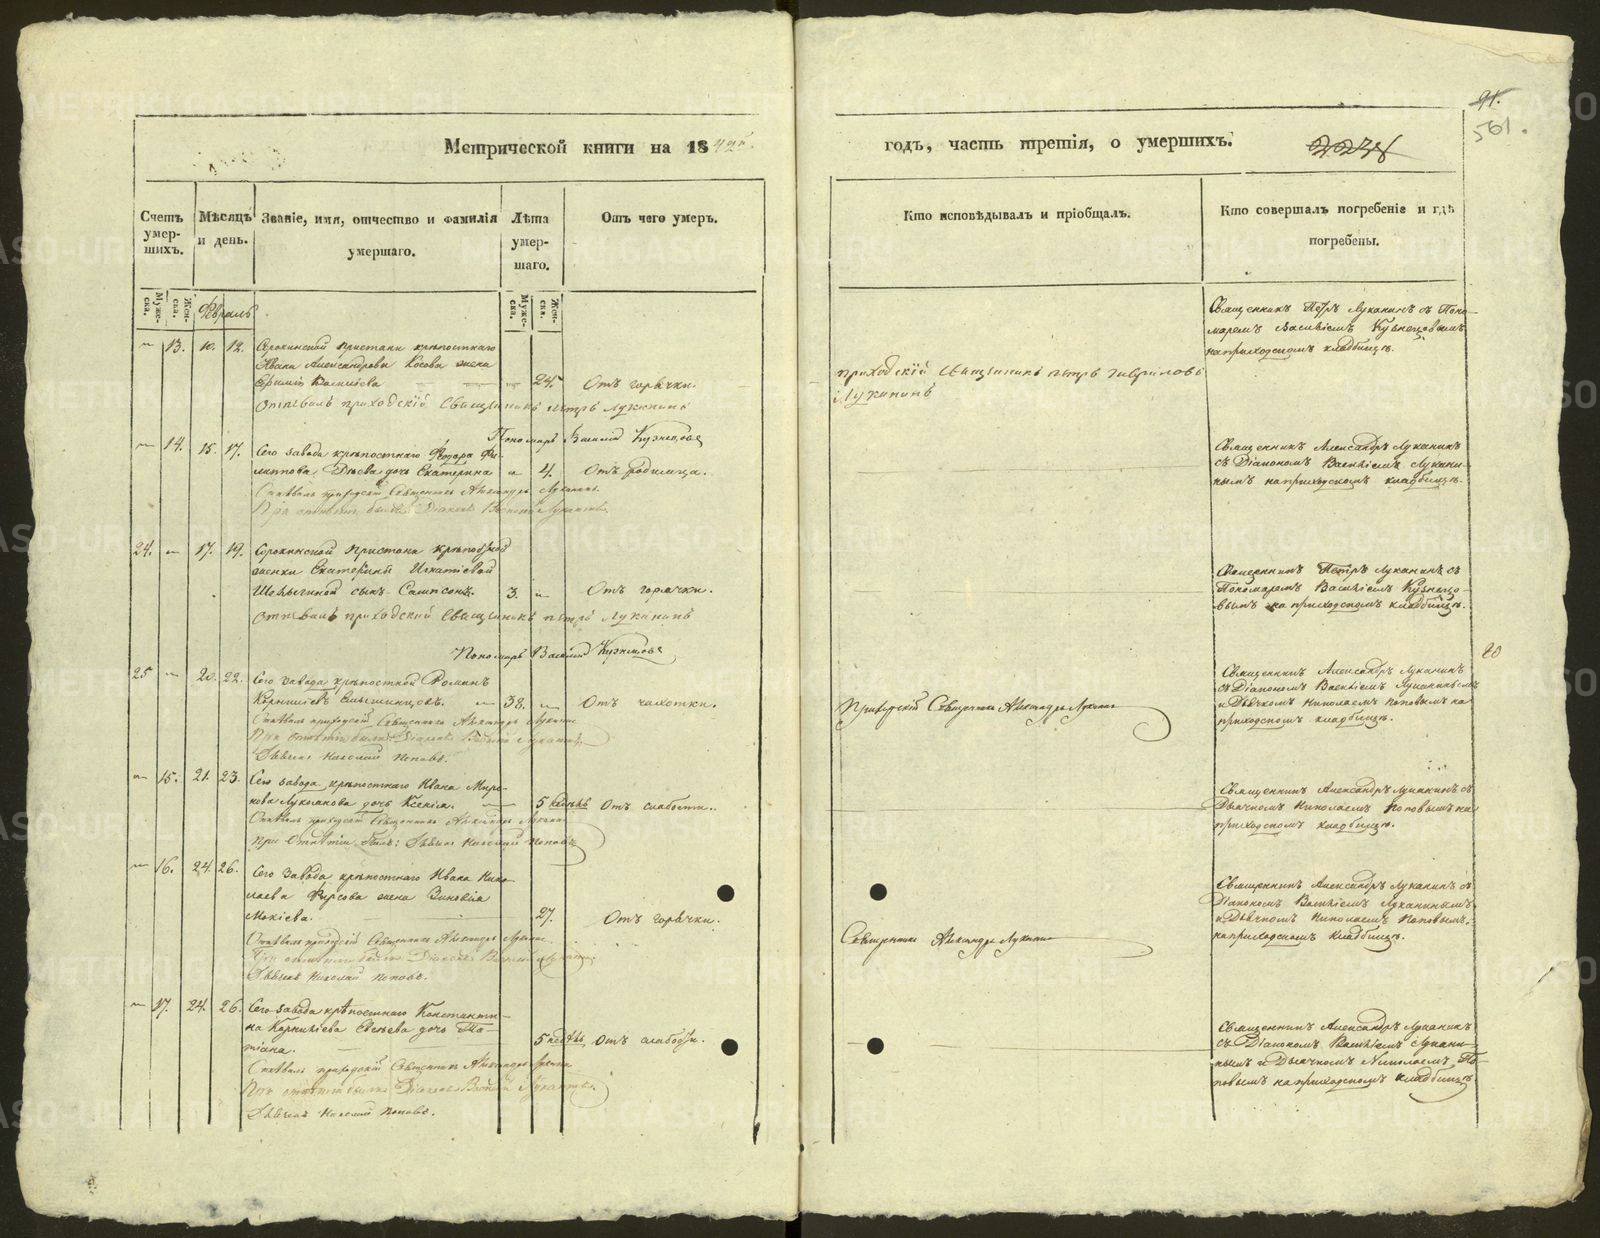 91.
561.
Метрической книги на 1842й.
годъ, часть третія, о умершихъ.
2238
Счетъ умер-шихъ.
Мѣсяцъ и день.
Званіе, имя, отчество и фамилія умершаго.
Лѣта умер-шаго.
Отъ чего умеръ.
Кто исповѣдывалъ и пріобщалъ.
Кто совершалъ погребеніе и гдѣ погребены.
Муже-ска.
Жен-ска.
Февраль
Муже-ска.
Жен-ска.
13. 10. 12. Сорокинской пристани крѣпостнаго
Ивана Александрова Косова жена
Васильева 24. Отъ горячки.
Отпѣвалъ приходскій Священникъ Петръ Луканинъ
Пономарь Василій Кузнецовъ
приходскій Священникъ Петръ Гавриловъ
Луканинъ
Священникъ Петръ Луканинъ съ Поно-
маремъ Василіемъ Кузнецовымъ
на приходскомъ кладбищѣ.
14. 15. 17. Сего завода крѣпостнаго Федора Фи-
липпова дочь Екатерина 4. Отъ родимца.
Отпѣвалъ приходскій Священникъ Александръ Луканинъ
При отпѣтіи былъ Діаконъ Василій Луканинъ
Священникъ Александръ Луканинъ
съ Діакономъ Василіемъ Лукани-
нымъ на приходскомъ кладбищѣ.
24. 17. 19. Сорокинской пристани крѣпостной
женки Екатерины Игнатіевой
сынъ Сампсонъ. 3. Отъ горячки.
Отпѣвалъ приходскій Священникъ Петръ Луканинъ
Пономарь Василій Кузнецовъ
Священникъ Петръ Луканинъ съ
Пономаремъ Василіемъ Кузнецо-
вымъ на приходскомъ кладбищѣ.
20
25 20. 22. Сего завода крѣпостной Романъ
Корниліевъ 38. Отъ чахотки.
Отпѣвалъ приходскій Священникъ Александръ Луканинъ
При отпѣтіи были: Діаконъ Василій Луканинъ,
Дьячекъ Николай Поповъ.
Приходскій Священникъ Александръ Луканинъ
Священникъ Александръ Луканинъ
съ Діакономъ Василіемъ Луканинымъ
и Дьячкомъ Николаемъ Поповымъ на
приходскомъ кладбищѣ.
15. 21. 23. Сего завода крѣпостнаго Ивана Миро-
нова Лукоянова дочь Ксенія. 5 недѣль Отъ слабости.
Отпѣвалъ приходскій Священникъ Александръ Луканинъ
При отпѣтіи былъ: Дьячекъ Николай Поповъ
Священникъ Александръ Луканинъ съ
Дьячкомъ Николаемъ Поповымъ на
приходскомъ кладбищѣ.
16. 24. 26. Сего завода крѣпостнаго Ивана Нико-
лаева Фирсова жена Зиновіа
Мокіева. 27. Отъ горячки.
Отпѣвалъ приходскій Священникъ Александръ Луканинъ
При отпѣтіи были: Діаконъ Василій Луканинъ
Дьячекъ Николай Поповъ.
Священникъ Александръ Луканинъ
Священникъ Александръ Луканинъ съ
Діакономъ Василіемъ Луканинымъ
и Дьячкомъ Николаемъ Поповымъ.
на приходскомъ кладбищѣ.
17. 24. 26. Сего завода крѣпостнаго Константи-
на Корниліева Евсеева дочь Та-
тіана. 5 недѣль Отъ слабости.
Отпѣвалъ приходскій Священникъ Александръ Луканинъ
При отпѣтіи были: Діаконъ Василій Луканинъ
Дьячекъ Николай Поповъ.
Священникъ Александръ Луканинъ
съ Діакономъ Василіемъ Лукани-
нымъ и Дьячкомъ Николаемъ По-
повымъ на приходскомъ кладбищѣ
METRIKI.GASO-URAL.RU